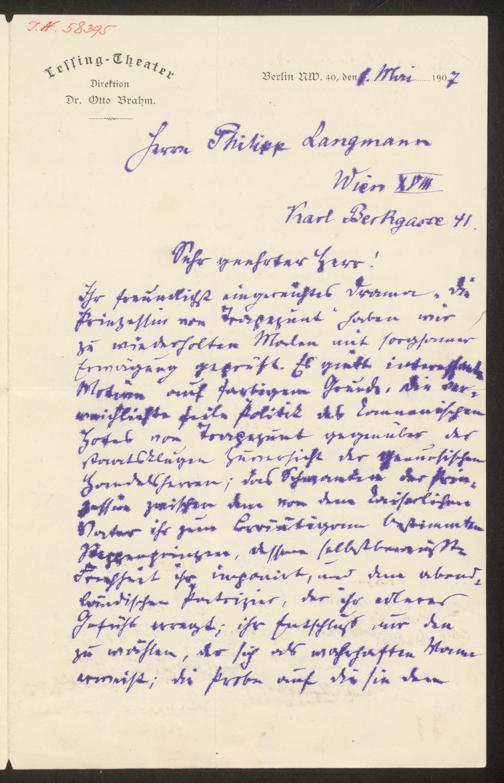 I.N. 58395
Lessing-Theater
Direktion
Dr. Otto Brahm.
Berlin NW. 40, den 1. Mai 1907
Herrn Philipp Langmann
Wien XVIII
Karl Beckgasse 41.
Sehr geehrter Herr!
Ihr freundlichst eingereichtes Drama „die
Prinzessin von Trapezunt" haben wir
zu wiederholten Malen mit sorgsamer
Erwägung geprüft. Es giebt interessante
Motive auf farbigem Grunde, die ver-
weichlichte feile Politik des Komnenischen
Hofes von Trapezunt gegenüber der
staatsklugen Zuversicht der genuesischen
Handelsherren; das Schwanken der Prin-
zessin zwischen dem von dem kaiserlichen
Vater ihr zum Bräutigam bestimmten
Steppenprinzen, dessen selbstbewusste
Frechheit ihr imponirt, und dem abend-
ländischen Patrizier, der ihr edleres
Gefühl erregt; ihr Entschluß nur den
zu wählen, der sich als wahrhaften Mann
erweist; die Probe auf die sie dem